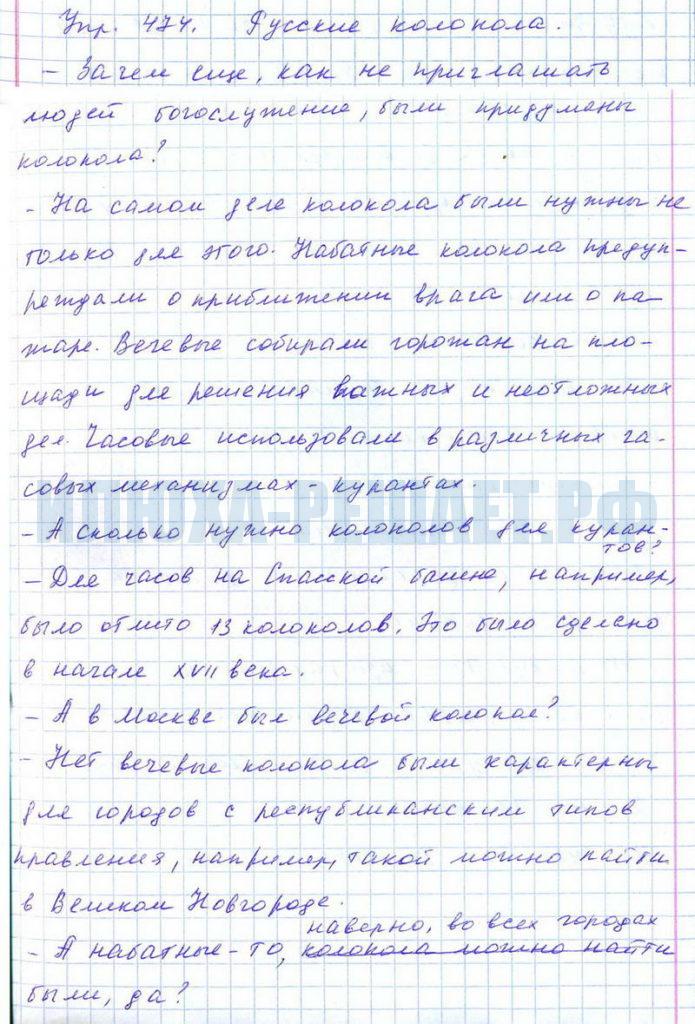 Упр. 474. Русские колокола.
- Зачем еще, как не приглашать
людей богослужение, были придуманы
колокола?
- На самом деле колокола были нужны не
только для этого. Набатные колокола предуп-
реждали о приближении врага или о па-
жаре. Вечевые собирали горожан на пло-
щади для решения важных и неотложных
дел. Часовые использовали в различных ча-
совых механизмах - курантах.
- А сколько нужно колоколов для куран-
тов?
- Для часов на Спасской башне, например,
было отлито 13 колоколов. Это было сделано
в начале XVII века.
- А в Москве был вечевой колокол?
- Нет вечевые колокола были характерны
для городов с республиканским типов
правления, например, такой можно найти
в Великом Новгороде.
наверно, во всех городах
- А набатные-то, колокола можно найти
были, да?
ИЛЮХА-РЕШАЕТ.РФ